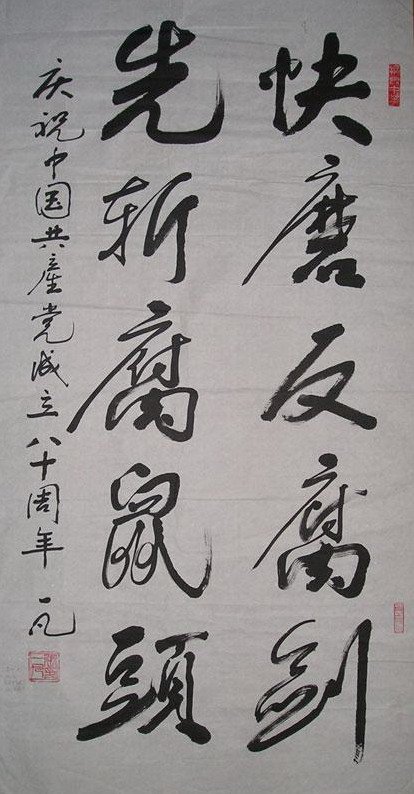 快磨反腐劍
先斩腐鼠頭
庆祝中国共產党成立八十周年 一凡